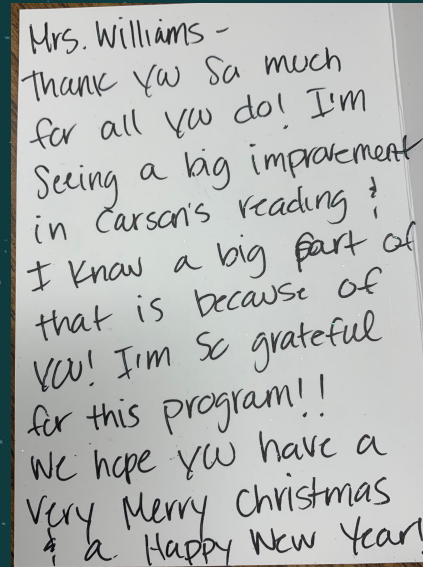 Mrs. Williams -
Thank you so much
for all you do! I'm
Seeing a big improvement
in Carson's reading &
I know a big part of
that is because of
you! I'm so grateful
for this program!!
We hope you have a
Very Merry Christmas
& a Happy New Year!